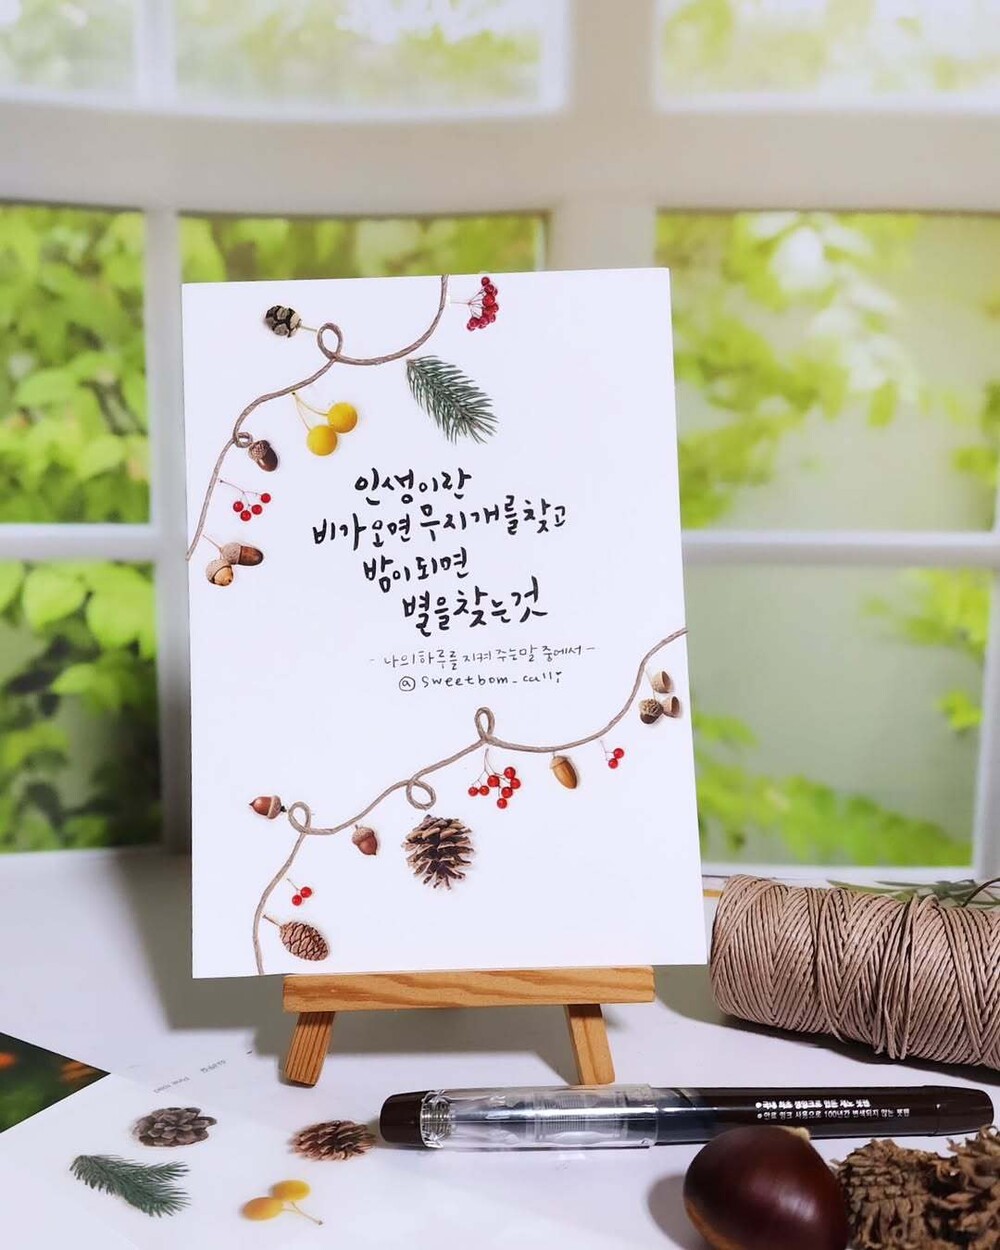 인생이란
비가오면 무지개를 찾고
밤이 되면
별을 찾는 것
- 나의 하루를 지켜 주는 말 중에서 -
@sweetbom_calli